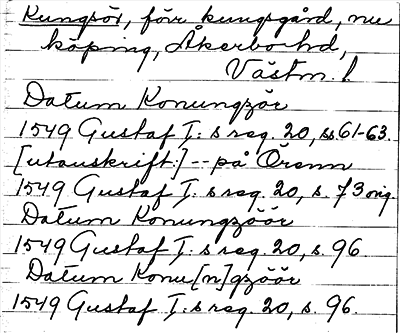 Kungsör, förr kungsgård, nu
köping, Åkerbo hd,
Västm. l.
Datum Konungzör
1549 Gustaf I:s reg. 20, ss 61-63.
[utanskrift:] -- på Örenn
1549 Gustaf I:s reg. 20, s. 73 orig.
Datum Konungzöör
1549 Gustaf I:s reg. 20, s. 96.
Datum Konu[n]gzöör
1549 Gustaf I:s reg. 20, s. 96.